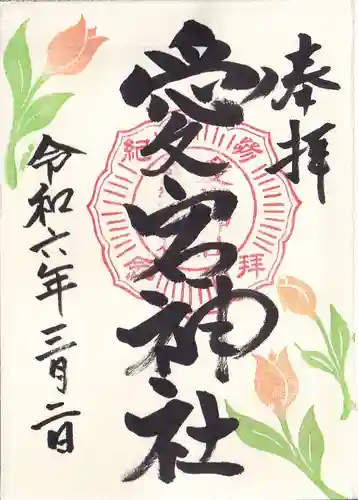 奉拝
愛宕神社
令和六年三月二日
参拝
紀念